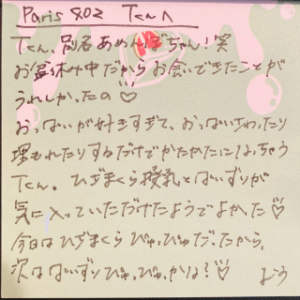 Paris 802 Tくんへ
Tくん、別名あめんぼちゃん！笑
お盆休み中だからお会いできたことが
うれしかったの♡
おっぱいが好きすぎて、おっぱいさわったり
埋もれたりするだけでかたかたになっちゃう
Tくん。ひざまくら授乳とぱいずりが
気に入っていただけたようでよかった♡
今日はひざまくらびゅびゅだったから、
次はぱいずりびゅびゅかな？♡